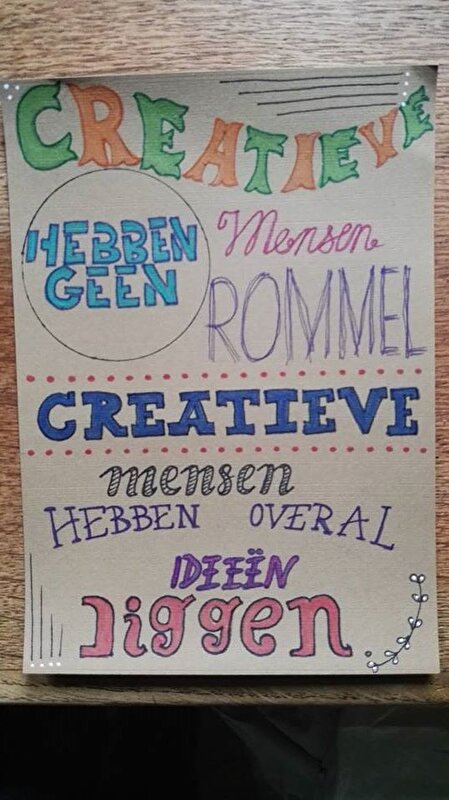 CREATIEVE
Mensen
HEBBEN
GEEN
ROMMEL
CREATIEVE
mensen
HEBBEN OVERAL
IDEEËN
liggen.